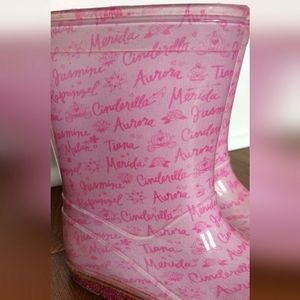 Merida
Jasmine Cinderella
Rapunzel Aurora Tiana
Cinderella Merida
Mulan Aurora Jasmine
Tiana
Merida Aurora
Jasmine Cinderella
Rapunzel Aurora
Cinderella Merida
Mulan Aurora
Tiana
Merida